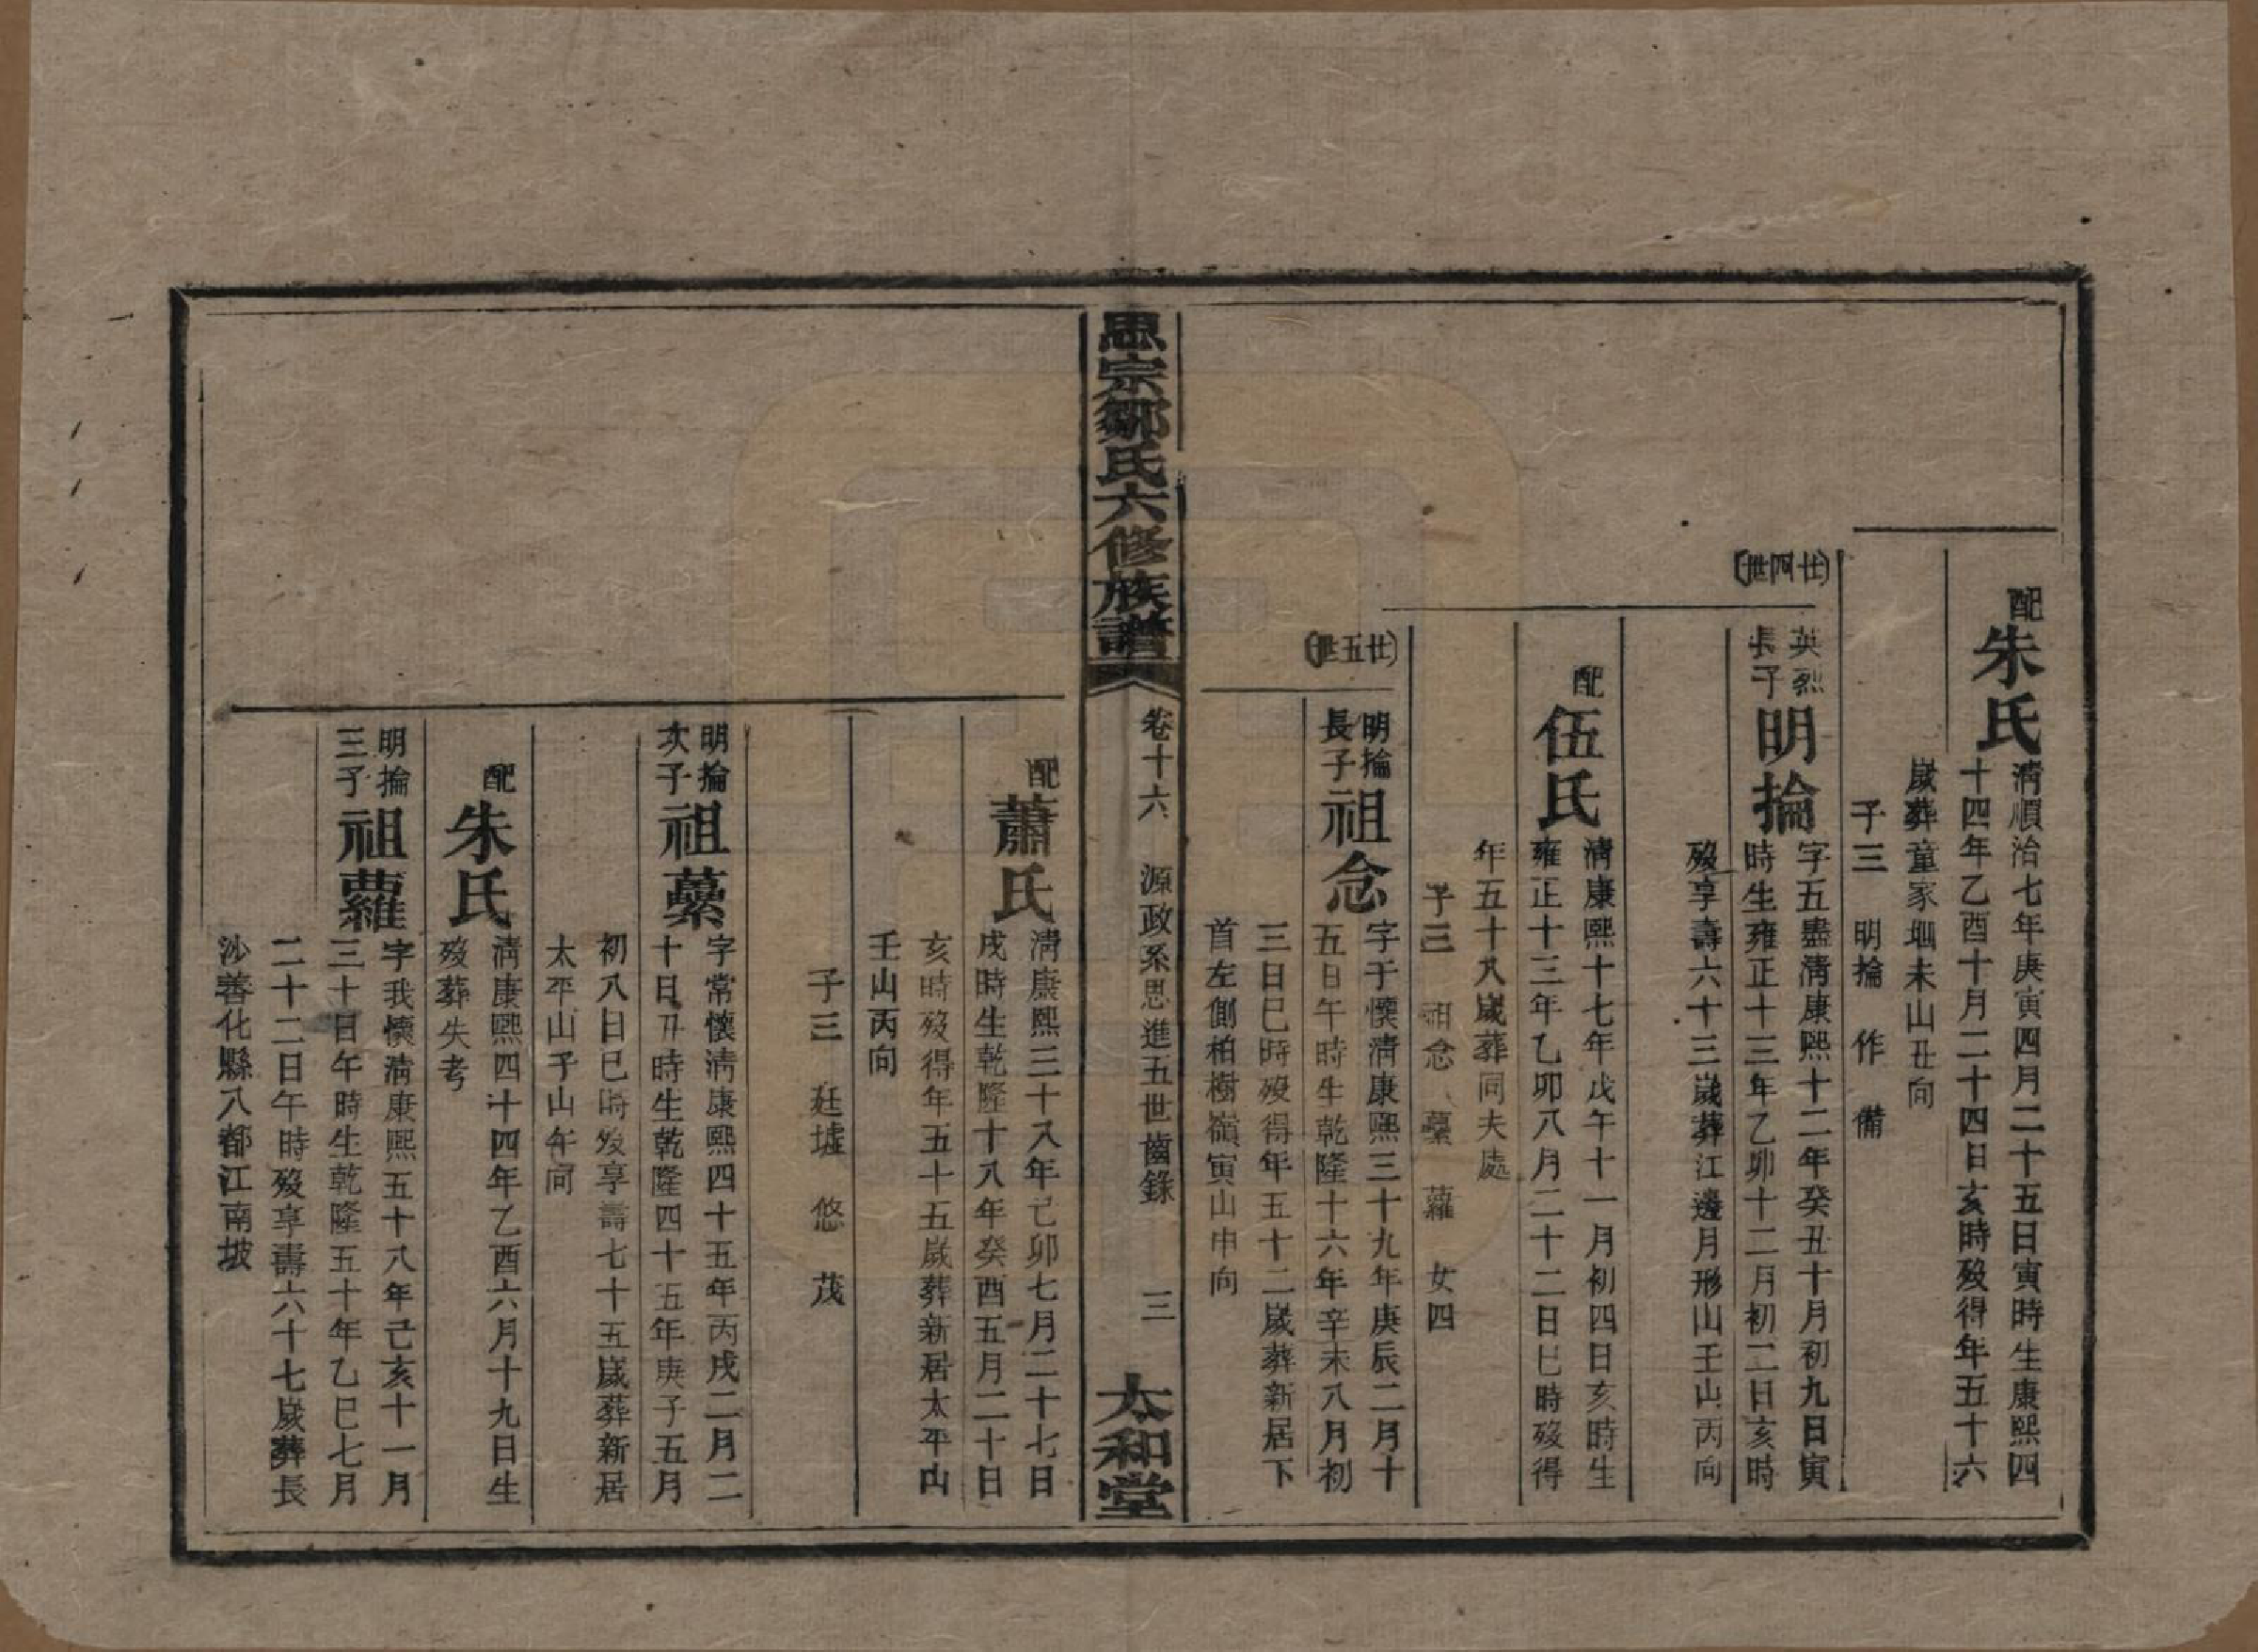 配朱氏
淸順治七年庚寅四月二十五日寅時生康熙四
十四年乙酉十月二十四日亥時歿得年五十六
歲葬童家堋未山丑向
子三　明掄　作　備
(廿四世)
英烈長子明掄
字五盡淸康熙十二年癸丑十月初九日寅
時生雍正十三年乙卯十二月初二日亥時
歿享壽六十三歲葬江邊月形山壬山丙向
配伍氏
淸康熙十七年戊午十一月初四日亥時生
雍正十三年乙卯八月二十二日巳時歿得
年五十八歲葬同夫處
子三　祖念　虆　蘿　女四
(廿五世)
明掄長子祖念
字于懷淸康熙三十九年庚辰二月十
五日午時生乾隆十六年辛未八月初
三日巳時歿得年五十二歲葬新居下
首左側柏樹嶺寅山申向
思宗鄒氏六修族譜
卷十六　源政系思進五世齒錄　三
太和堂
配蕭氏
淸康熙三十八年己卯七月二十七日
戌時生乾隆十八年癸酉五月二十日
亥時歿得年五十五歲葬新居太平山
壬山丙向
子三　廷墟　悠　茂
明掄次子祖虆
字常懷淸康熙四十五年丙戌二月二
十日丑時生乾隆四十五年庚子五月
初八日巳時歿享壽七十五歲葬新居
太平山子山午向
配朱氏
淸康熙四十四年乙酉六月十九日生
歿葬失考
明掄三子祖蘿
字我懷淸康熙五十八年己亥十一月
三十日午時生乾隆五十年乙巳七月
二十二日午時歿享壽六十七歲葬長
沙善化縣八都江南坡